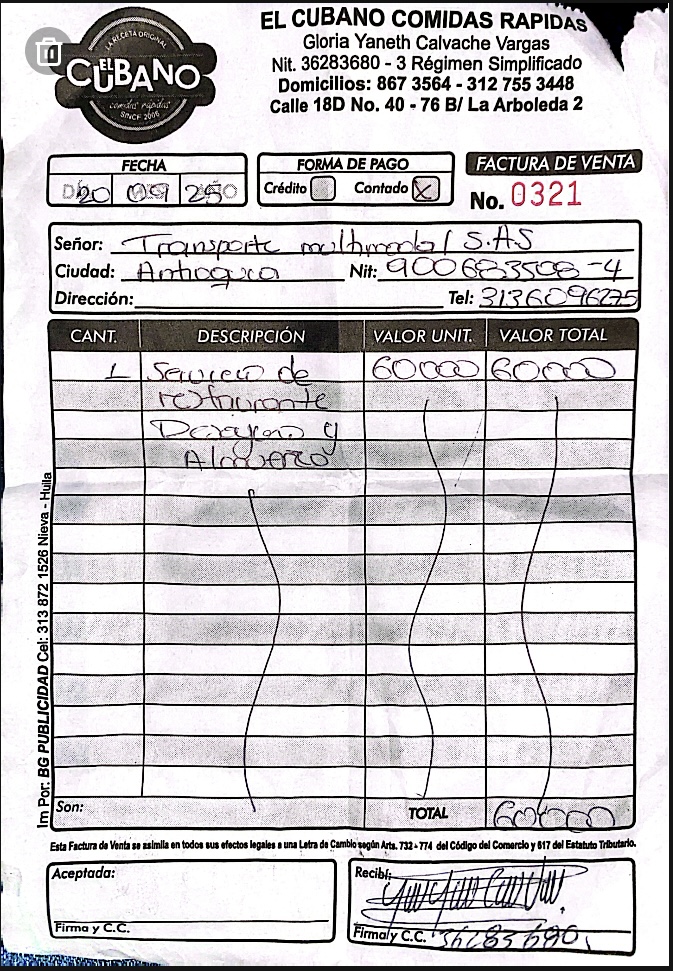 LA RECETA ORIGINAL
EL CUBANO
comidas rapidas
SINCE 2006
EL CUBANO COMIDAS RAPIDAS
Gloria Yaneth Calvache Vargas
Nit. 36283680 - 3 Régimen Simplificado
Domicilios: 867 3564 - 312 755 3448
Calle 18D No. 40 - 76 B/ La Arboleda 2
FECHA
20 09 25
FORMA DE PAGO
Crédito Contado X
FACTURA DE VENTA
No. 0321
Señor: Transporte multimodal S.AS
Ciudad: Antioquia Nit: 900683508-4
Dirección: Tel: 3136096275
CANT. DESCRIPCIÓN VALOR UNIT. VALOR TOTAL
1 Servicio de 60000 60000
restaurante
Desayuno y
Almuerzo
Son: TOTAL 60000
Im Por: BG PUBLICIDAD Cel: 313 872 1526 Nieva - Huila
Esta Factura de Venta se asimila en todos sus efectos legales a una Letra de Cambio según Arts. 732 - 774 del Código del Comercio y 617 del Estatuto Tributario.
Aceptada:
Firma y C.C.
Recibí:
Firma y C.C. 36283680